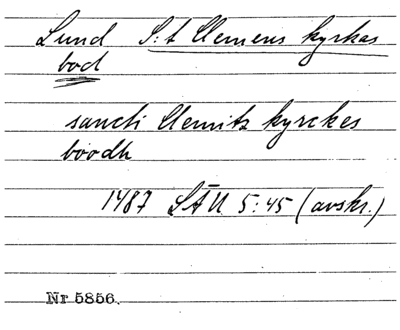 Lund S:t Clemens kyrkas
bod
sancti Clemitz kyrckes
boodh
1487 LÄU 5:45 (avskr.)
Nr 5856.